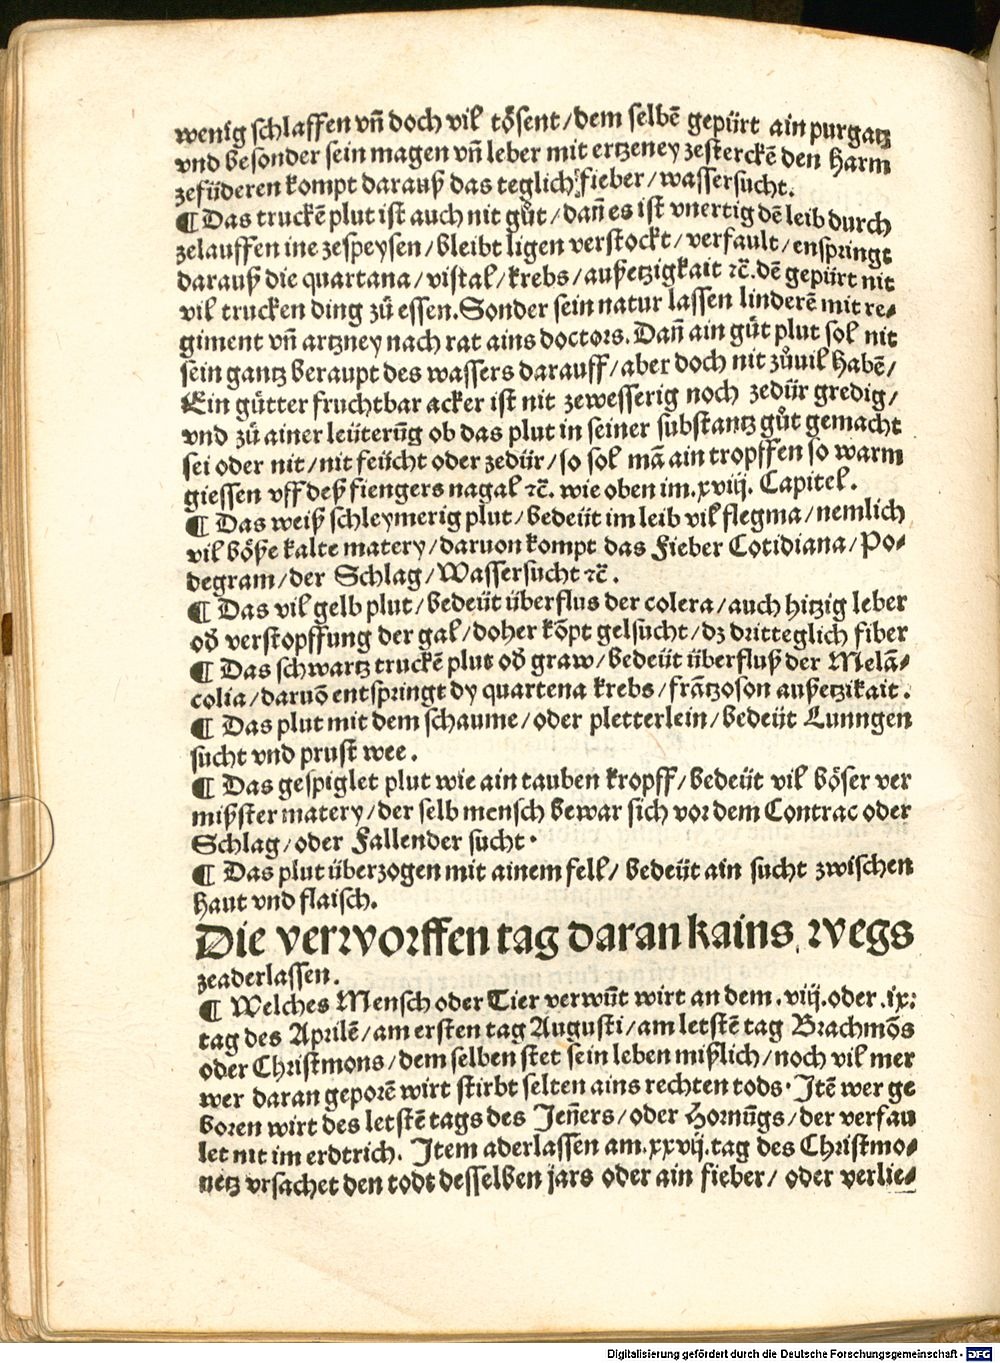 wenig schlaffen vñ doch vil tösent/dem selbē gepürt ain purgatz
vnd besonder sein magen vñ leber mit ertzeney zesterckē den harm
zefüderen kompt darauß das teglich fieber/wassersucht.
¶ Das truckē plut ist auch nit gůt/dañ es ist vnertig dē leib durch
zelauffen ine zespeysen/bleibt ligen verstockt/verfault/enspringt
darauß die quartana/vistal/krebs/außetzigkait ⁊c̄. dē gepürt nit
vil trucken ding zů essen. Sonder sein natur lassen linderē mit re⸗
giment vñ artzney nach rat ains doctors. Dañ ain gůt plut sol nit
sein gantz beraupt des wassers darauff/aber doch nit zůuil habē/
Ein gütter fruchtbar acker ist nit zewesserig noch zedür gredig/
vnd zů ainer leüterūg ob das plut in seiner substantz gůt gemacht
sei oder nit/nit feücht oder zedür/so sol mā ain tropffen so warm
giessen vff deß fiengers nagal ⁊c̄. wie oben im.xviij. Capitel.
¶ Das weiß schleymerig plut/bedeüt im leib vil flegma/nemlich
vil böße kalte matery/daruon kompt das Fieber Cotidiana/Po⸗
degram/der Schlag/Wassersucht ⁊c̄.
¶ Das vil gelb plut/bedeüt überflus der colera/auch hitzig leber
oď verstopffung der gal/doher kōpt gelsucht/dz dritteglich fiber
¶ Das schwartz truckē plut oď graw/bedeüt überfluß der Melā⸗
colia/daruō entspringt dy quartena krebs/frātzoson außetzikait.
¶ Das plut mit dem schaume/oder pletterlein/bedeüt Lunngen
sucht vnd prust wee.
¶ Das gespiglet plut wie ain tauben kropff/bedeüt vil böser ver
mißster matery/der selb mensch bewar sich vor dem Contrac oder
Schlag/oder Fallender sucht.
¶ Das plut überzogen mit ainem fell/bedeüt ain sucht zwischen
haut vnd flaisch.
Die verworffen tag daran kains wegs
zeaderlassen.
¶ Welches Mensch oder Tier verwūt wirt an dem.viij.oder.ix:
tag des Aprilē/am ersten tag Augusti/am letstē tag Brachmōs
oder Christmons/dem selben stet sein leben mißlich/noch vil mer
wer daran geporē wirt stirbt selten ains rechten tods. Itē wer ge
boren wirt des letstē tags des Jeñers/oder Hornūgs/der verfau
let nit im erdtrich. Item aderlassen am.xxvij.tag des Christmo⸗
netz vrsachet den todt desselben jars oder ain fieber/oder verlie⸗
Digitalisierung gefördert durch die Deutsche Forschungsgemeinschaft - DFG